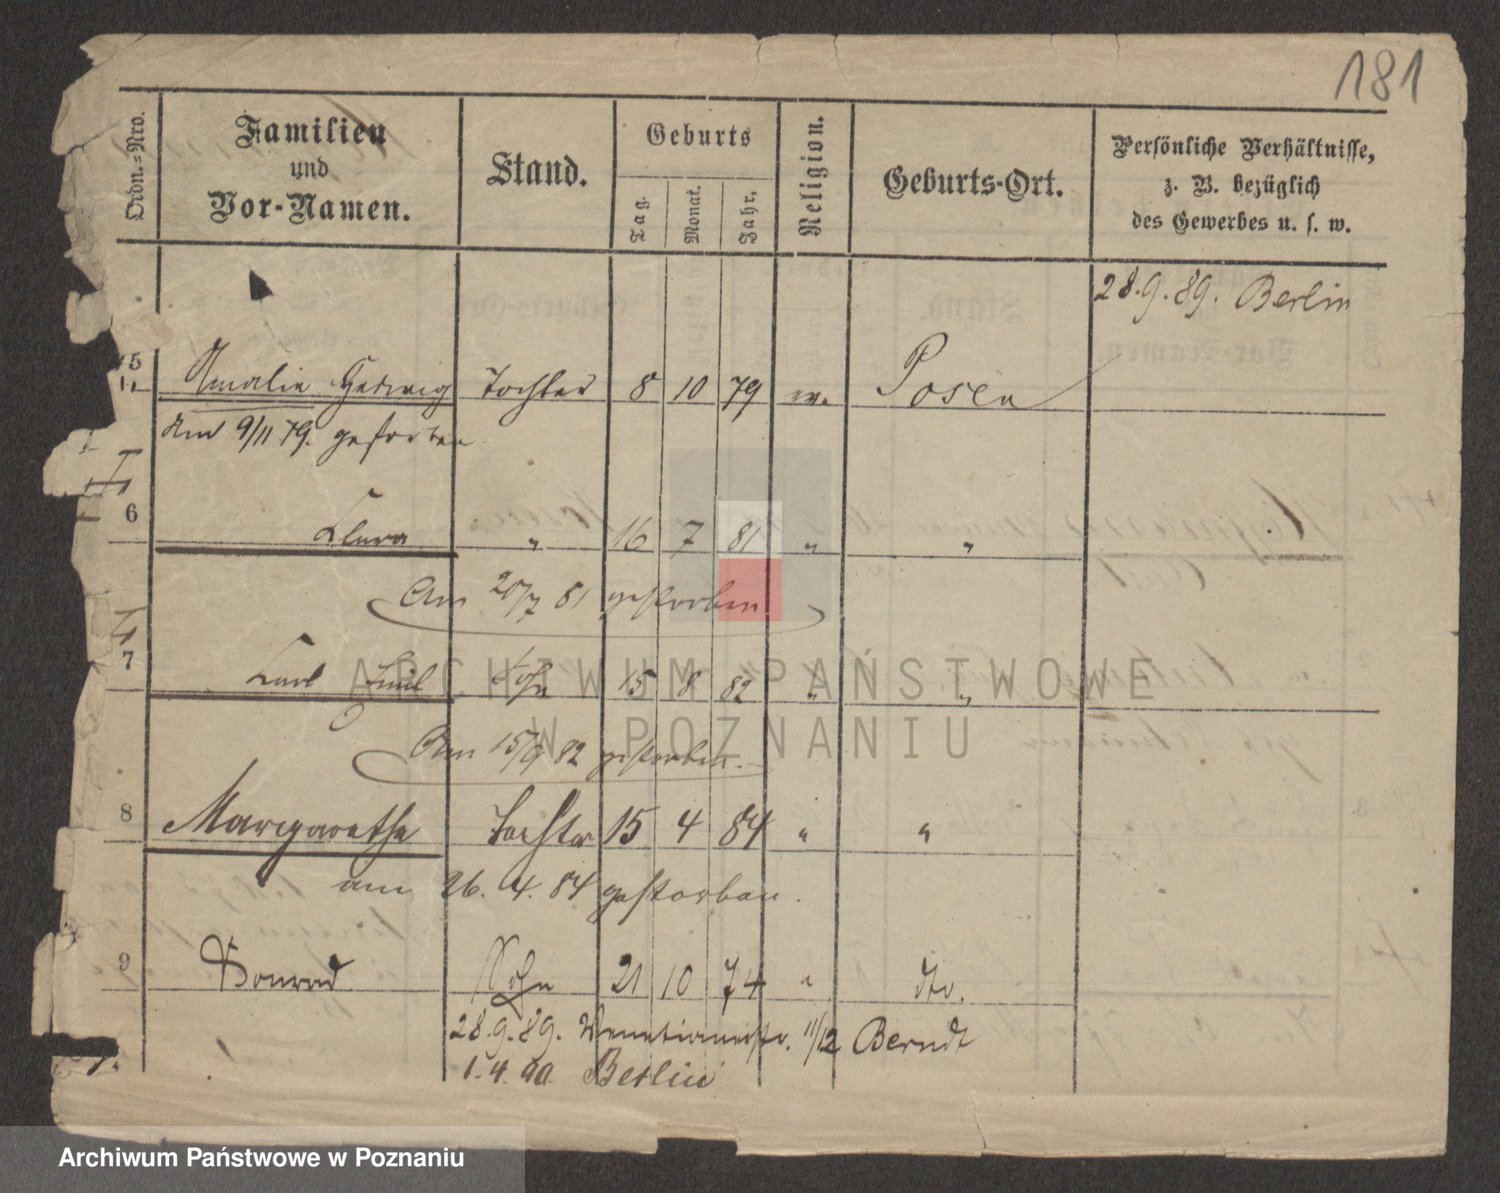 181
Ordn.=Nro.
Familien
und
Vor-Namen.
Stand.
Geburts
Tag.
Monat.
Jahr.
Religion.
Geburts-Ort.
Persönliche Verhältnisse,
z. B. bezüglich
des Gewerbes u. s. w.
28.9.89. Berlin
5 Amalie Hedwig Tochter 8 10 79 ev. Posen
Am 9/11 79. gestorben
6 Clara " 16 7 81 " "
Am 20/7 81 gestorben
7 Carl Emil Sohn 15 8 82 " "
Am 15/9 82 gestorben.
8 Margarethe Tochter 15 4 84 " "
am 26. 4. 84 gestorben.
9 Konrad Sohn 21 10 74 " dto.
28.9.89. Venetianerstr. 11/12 Berndt
1.4.90 Berlin
ARCHIWUM PAŃSTWOWE
W POZNANIU
Archiwum Państwowe w Poznaniu